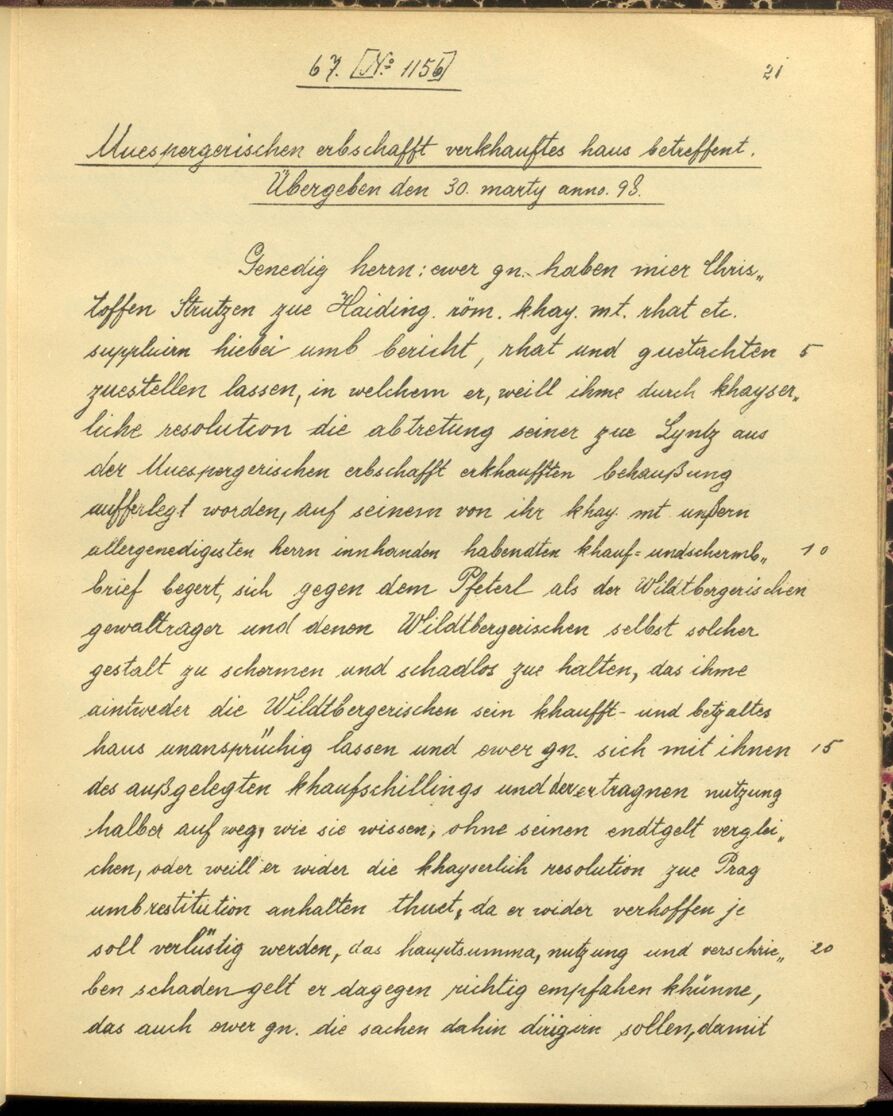 67. [N.o 1156]
21
Muespergerischen erbschafft verkhauftes haus betreffent.
Übergeben den 30. marty anno. 98.
Genedig herrn: ewer gn. haben mier Chris„
toffen Strutzen zue Haiding. röm. khay. mt. rhat etc.
supplicirn hiebei umb bericht, rhat und guetachten 5
zuestellen lassen, in welchem er, weill ihme durch khayser„
liche resolution die abtretung seiner zue Lyntz aus
der Muespergerischen erbschafft erkhaufften behaußung
aufferlegt worden, auf seinem von ihr khay. mt. unßern
allergenedigisten herrn innhanden habendten khauf= undschermb„ 10
brief begert, sich gegen dem Pfeterl als der Wildtbergerischen
gewaltrager und denen Wildtbergerischen selbst solcher
gestalt zu schermen und schadlos zue halten, das ihme
aintweder die Wildtbergerischen sein khaufft- und betzaltes
haus unansprüchig lassen und ewer gn. sich mit ihnen 15
des außgelegten khaufschillings und der ertragnen nutzung
halber auf weg, wie sie wissen, ohne seinen endtgelt verglei„
chen, oder weill er wider die khayserlich resolution zue Prag
umb restitution anhalten thuet, da er wider verhoffen je
soll verlüstig werden, das hauptsumma, nutzung und verschrie„ 20
ben schadengelt er dagegen richtig empfahen khünne,
das auch ewer gn. die sachen dahin dirigirn sollen, damit